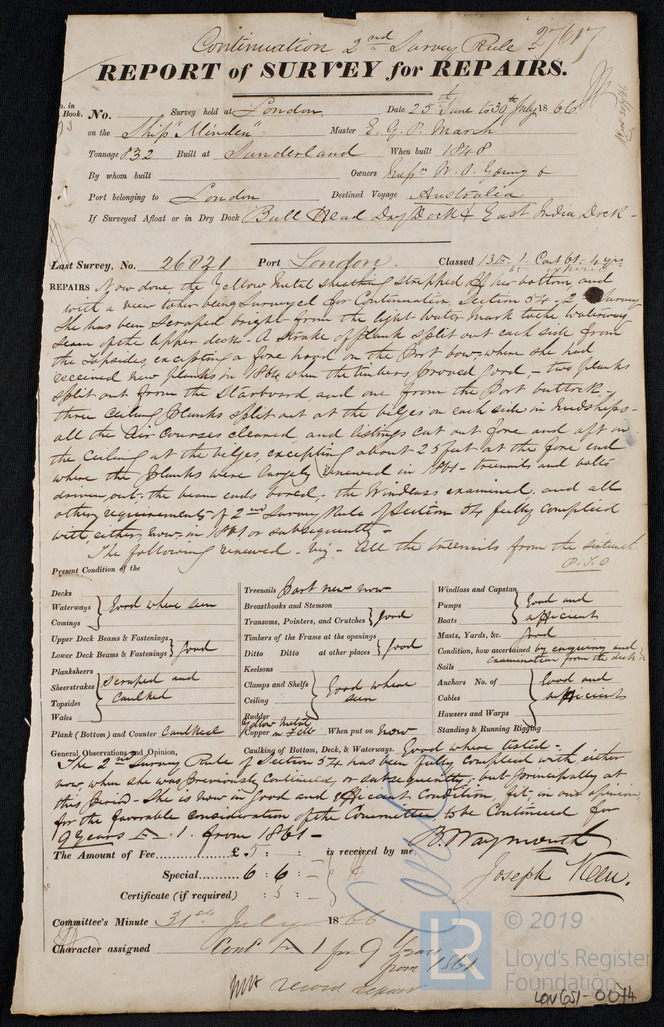 Continuation 2nd Survey Rule 27617
REPORT of SURVEY for REPAIRS.
No. in Book. No. Survey held at London Date 25th June to 30th July 1866
on the Ship "Minden" Master E. G. P. Marsh
Tonnage 832 Built at Sunderland When built 1848
By whom built Owners Mess W. O. Young &
Port belonging to London Destined Voyage Australia
If Surveyed Afloat or in Dry Dock Bull Head Dry Dock & East India Dock -
Last Survey, No. 26821 Port London. Classed 13 A. 1. Cont 61 - 4 yrs
expired
REPAIRS Now done the Yellow Metal sheathing stripped off her bottom, and
with a view to her being surveyed for Continuation Section 54 - 2nd Survey
She has been scraped bright from the light water mark to the waterway
seam of the upper deck - A strake of plank split out each side from
the topsides, excepting a fore hood on the Port bow - where she had
received new planks in 1864, when the timbers proved good, - two planks
split out from the Starboard and one from the Port buttock -
three ceiling planks split out at the bilges on each side in midships -
all the air courses cleared, and listings cut out fore and aft in
the ceiling at the bilges, excepting about 25 feet at the fore end
where the planks were largely renewed in 1861 - treenails and bolts
driven out, the beam ends bored, the Windlass examined, and all
other requirements of 2nd Survey Rule of Section 54 fully complied
with, either, now, in 1861 or subsequently -
The following renewed - viz - All the treenails from the sixteenth
P.T.O
Present Condition of the
Decks
Waterways Good where seen
Comings
Upper Deck Beams & Fastenings
Lower Deck Beams & Fastenings Good
Planksheers
Sheerstrakes Scraped and
Topsides Caulked
Wales
Plank (Bottom) and Counter Caulked
Treenails Part new now
Breasthooks and Stemson
Transoms, Pointers, and Crutches Good
Timbers of the Frame at the openings
Ditto Ditto at other places Good
Keelsons
Clamps and Shelfs Good where
Ceiling seen
Rudder
Yellow Metal
Copper on Felt When put on Now
Caulking of Bottom, Deck, & Waterways. Good where tested -
Windlass and Capstan
Pumps Good and
Boats efficient
Masts, Yards, &c. Good
Condition, how ascertained by enquiring and
examination from the deck
Sails
Anchors No. of Good and
Cables efficient
Hawsers and Warps
Standing & Running Rigging
General Observations and Opinion,
The 2nd Survey Rule of Section 54 has been fully complied with, either
now, when she was previously continued, or subsequently, but principally at
this period - She is now in Good and efficient Condition, fit, in our opinion,
for the favorable consideration of the Committee to be Continued for
9 Years A. 1. from 1861 -
B. Waymouth
The Amount of Fee £ 5 : : is received by me,
Special 6 : 6 :
Joseph Keen.
Certificate (if required) : 5 :
Committee's Minute 31st July 1866
Character assigned Cont A 1 for 9 Years
from 1861
record repairs
© 2019
LR Lloyd's Register
Foundation
LON651-0074